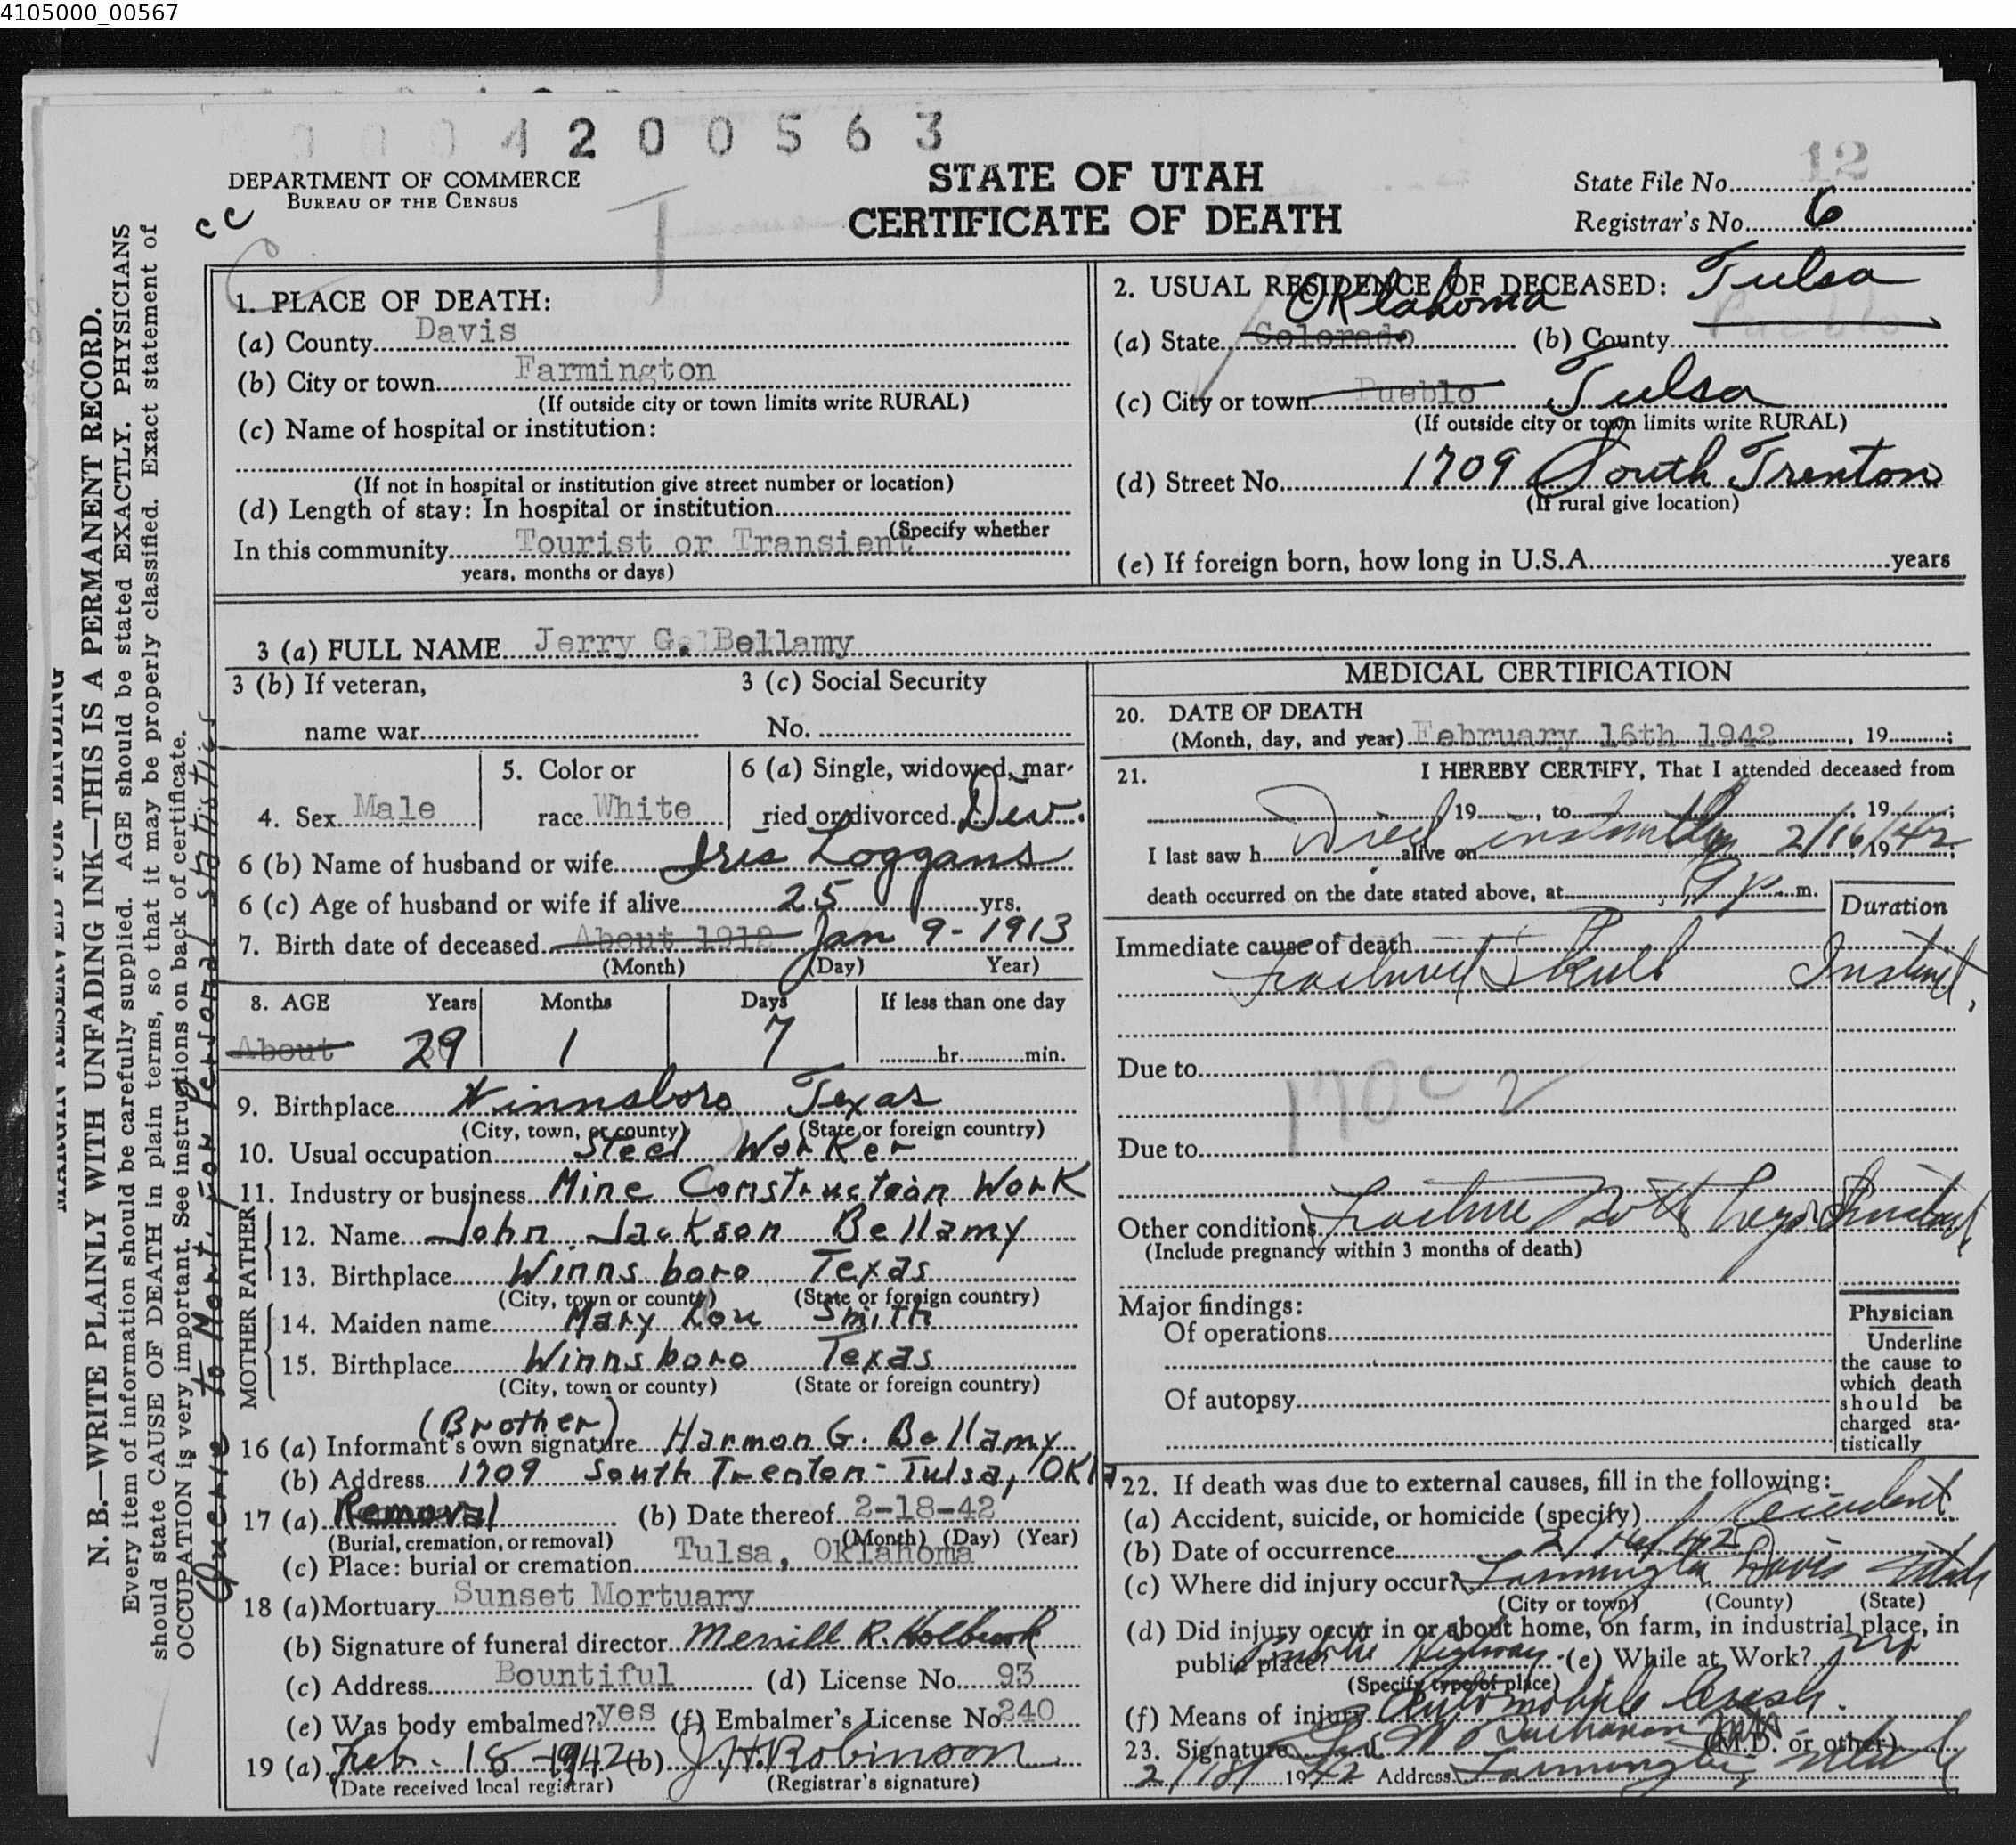 4105000_00567
4200563
DEPARTMENT OF COMMERCE
BUREAU OF THE CENSUS
STATE OF UTAH
CERTIFICATE OF DEATH
State File No. 12
Registrar's No. 6
cc
MARGIN RESERVED FOR BINDING
N. B.—WRITE PLAINLY WITH UNFADING INK—THIS IS A PERMANENT RECORD.
Every item of information should be carefully supplied. AGE should be stated EXACTLY. PHYSICIANS
should state CAUSE OF DEATH in plain terms, so that it may be properly classified. Exact statement of
OCCUPATION is very important. See instructions on back of certificate.
to Mort. for Personal statistics
1. PLACE OF DEATH:
(a) County Davis
(b) City or town Farmington
(If outside city or town limits write RURAL)
(c) Name of hospital or institution:
(If not in hospital or institution give street number or location)
(d) Length of stay: In hospital or institution
(Specify whether
In this community Tourist or Transient
years, months or days)
2. USUAL RESIDENCE OF DECEASED: Tulsa
Oklahoma
(a) State Colorado (b) County Pueblo
(c) City or town Pueblo Tulsa
(If outside city or town limits write RURAL)
(d) Street No. 1709 South Trenton
(If rural give location)
(e) If foreign born, how long in U.S.A. years
3 (a) FULL NAME Jerry G. Bellamy
3 (b) If veteran,
name war
3 (c) Social Security
No.
4. Sex Male
5. Color or
race White
6 (a) Single, widowed, mar-
ried or divorced Div.
6 (b) Name of husband or wife Iris Loggans
6 (c) Age of husband or wife if alive 25 yrs.
7. Birth date of deceased About 1912 Jan 9-1913
(Month) (Day) Year)
8. AGE Years Months Days If less than one day
About 29 1 7 hr. min.
9. Birthplace Winnsboro Texas
(City, town, or county) (State or foreign country)
10. Usual occupation Steel Worker
11. Industry or business Mine Construction Work
FATHER
12. Name John Jackson Bellamy
13. Birthplace Winnsboro Texas
(City, town or county) (State or foreign country)
MOTHER
14. Maiden name Mary Lou Smith
15. Birthplace Winnsboro Texas
(City, town or county) (State or foreign country)
(Brother)
16 (a) Informant's own signature Harmon G. Bellamy
(b) Address 1709 South Trenton - Tulsa, Okla
17 (a) Removal (b) Date thereof 2-18-42
(Burial, cremation, or removal) (Month) (Day) (Year)
(c) Place: burial or cremation Tulsa, Oklahoma
18 (a) Mortuary Sunset Mortuary
(b) Signature of funeral director Merrill R. Holbrook
(c) Address Bountiful (d) License No. 93
(e) Was body embalmed? yes (f) Embalmer's License No. 240
19 (a) Feb. 18-1942 (b) J.H. Robinson
(Date received local registrar) (Registrar's signature)
MEDICAL CERTIFICATION
20. DATE OF DEATH
(Month, day, and year) February 16th 1942, 19 ;
21. I HEREBY CERTIFY, That I attended deceased from
19 , to , 19 ;
Died instantly 2/16/42
I last saw h alive on , 19 ;
death occurred on the date stated above, at 9 p. m.
Duration
Immediate cause of death
Fractured Skull Instant,
Due to
170c 2
Due to
Other conditions Fracture Both Legs Instant
(Include pregnancy within 3 months of death)
Major findings:
Of operations
Of autopsy
Physician
Underline
the cause to
which death
should be
charged sta-
tistically
22. If death was due to external causes, fill in the following:
(a) Accident, suicide, or homicide (specify) Accident
(b) Date of occurrence 2/16/42
(c) Where did injury occur? Farmington Davis Utah
(City or town) (County) (State)
(d) Did injury occur in or about home, on farm, in industrial place, in
public place? Public Highway (e) While at Work? no
(Specify type of place)
(f) Means of injury Automobile Crash.
23. Signature Buchanan (M.D. or other)
2/18/ 1942 Address Farmington, Utah